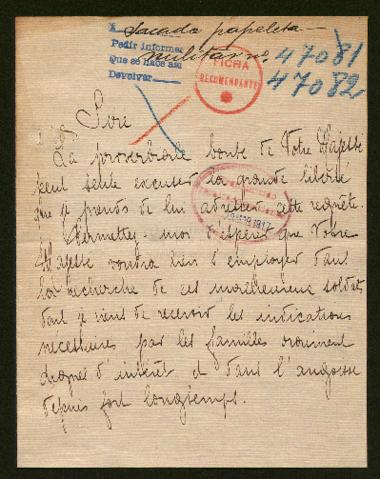 Sacada papeleta
militar no. 47081
47082
A
Pedir informes
que se hace así
Devolver
FICHA
RECOMENDANTE
Sire
La proverbiale bonté de Votre Majesté
peut seule excuser la grande liberté
que je prends de lui adresser cette requête.
Permettez-moi d'espérer que Votre
Majesté voudra bien s'employer dans
la recherche de ces malheureux soldats
dont je viens de recevoir les indications
necessaires par les familles vraiment
dignes d'intérêt et dans l'angoisse
depuis fort longtemps.